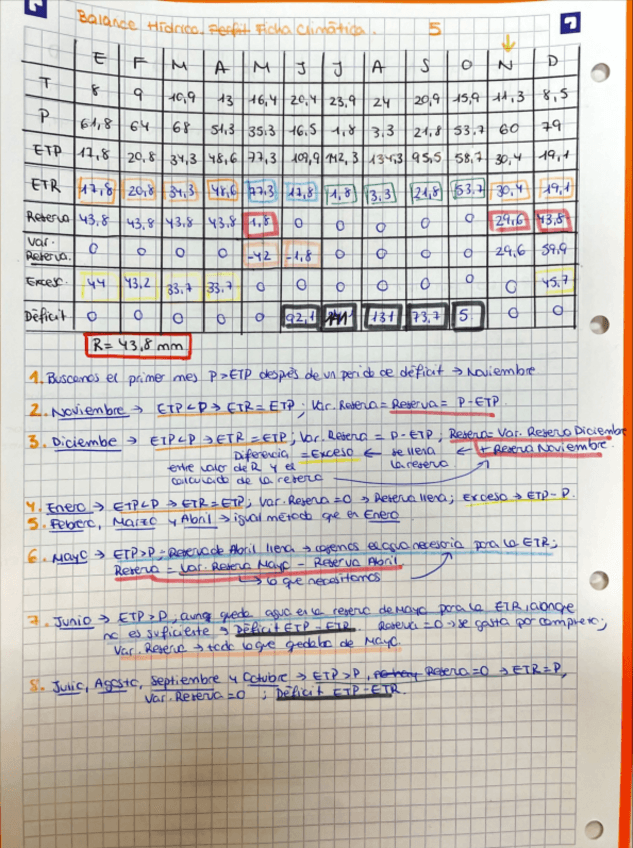 Balance Hídrico. Ficha Climática. 5
E F M A M J J A S O N D
T 8 9 10,9 13 16,4 20,4 23,9 24 20,9 15,9 11,3 8,5
P 61,8 64 68 51,3 35,3 16,5 1,8 3,3 21,8 53,7 60 79
ETP 17,8 20,8 34,3 48,6 77,3 109,9 142,3 134,3 95,5 58,7 30,4 19,1
ETR 17,8 20,8 34,3 48,6 77,3 17,8 1,8 3,3 21,8 53,7 30,4 19,1
Reserva 43,8 43,8 43,8 43,8 1,8 0 0 0 0 0 29,6 43,8
Var. Reserva. 0 0 0 0 -42 -1,8 0 0 0 0 29,6 59,9
Exceso. 44 43,2 33,7 33,7 0 0 0 0 0 0 0 45,7
Déficit 0 0 0 0 0 92,1 131 73,7 5 0 0
R= 43,8 mm
1. Buscamos el primer mes P>ETP después de un periodo de déficit → Noviembre
2. Noviembre → ETP<P → ETR=ETP; Var. Reserva = Reserva = P-ETP.
3. Diciembre → ETP<P → ETR=ETP; Var. Reserva = P-ETP, Reserva= Var. Reserva Diciembre
Diferencia = Exceso ← se llena ← + Reserva Noviembre.
entre valor de R y el la reserva
calculado de la reserva
4. Enero → ETP<P → ETR=ETP; Var. Reserva=0 → Reserva llena; Exceso → ETP-P.
5. Febrero, Marzo y Abril → igual método que en Enero
6. Mayo → ETP>P → Reserva de Abril llena → cogemos el agua necesaria para la ETR;
Reserva = Var. Reserva Mayo - Reserva Abril
→ lo que necesitamos
7. Junio → ETP>P, aunq queda agua en la reserva de Mayo para la ETR, aunque
no es suficiente → Déficit ETP-ETR. Reserva=0 → se gasta por completo;
Var. Reserva → todo lo que quedaba de Mayo.
8. Julio, Agosto, Septiembre y Octubre → ETP>P, Reserva=0 → ETR=P,
Var. Reserva=0 ; Déficit ETP-ETR.